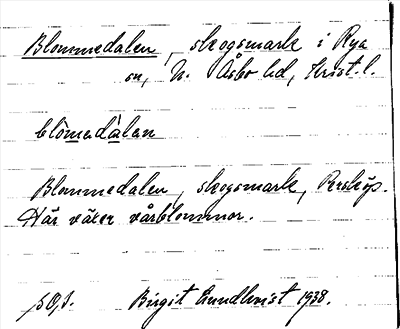 Blommedalen, skogsmark i Rya
sn, N. Åsbo hd, Krist. l.
blòmedàlan
Blommedalen, skogsmark, Perstorp.
Här växer vårblommor.
Birgit Lundkvist 1938.